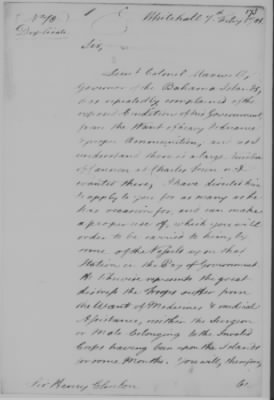 (No. 70)
Duplicate.
Whitehall 7th Febry 1781.
Sir,
Lieut Colonel Maxwell,
Governor of the Bahama Islands,
has repeatedly complained of the
exposed Condition of his Government,
from the Want of heavy Ordnance
& proper Ammunition, and as I
understand there is a large Number
of Cannon at Charles Town not
wanted there, I have directed him
to apply to you for as many as he
has occasion for, and can make
a proper use of, which you will
order to be carried to him, by
some of the Vessels upon that
Station in the Pay of Government.
He likewise represents the great
distress the Troops suffer from
the Want of Medicines & medical
Assistance, neither the Surgeon
or Mate belonging to the Invalid
Corps having been upon the Islands
for some Months. You will, therefore,
Sir Henry Clinton